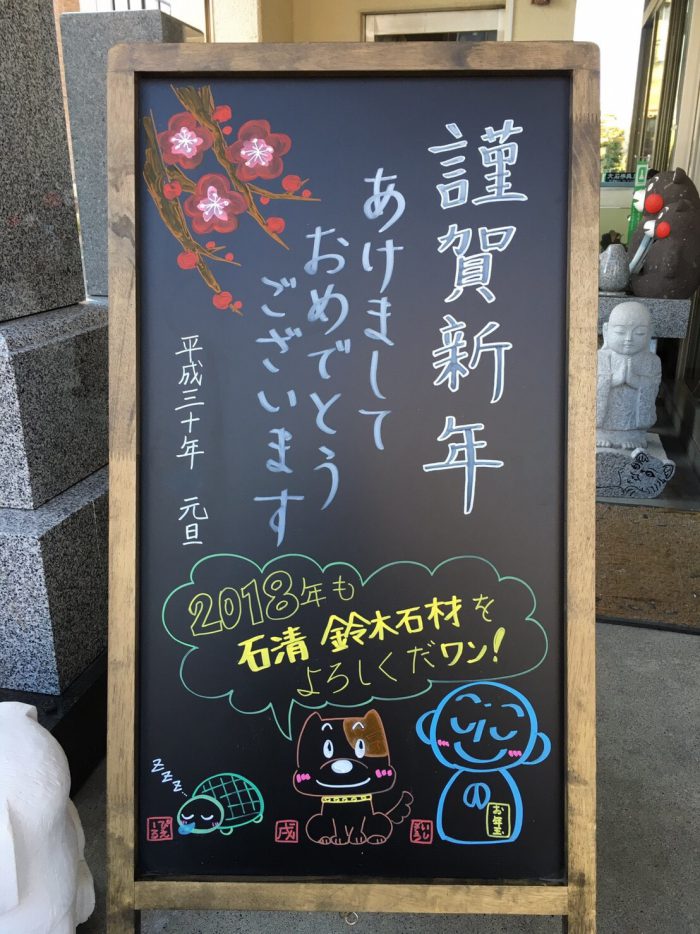 謹賀新年
あけまして
おめでとう
ございます
平成三十年 元旦
2018年も
石清 鈴木石材を
よろしくだワン!
zzz...
戌
お年玉